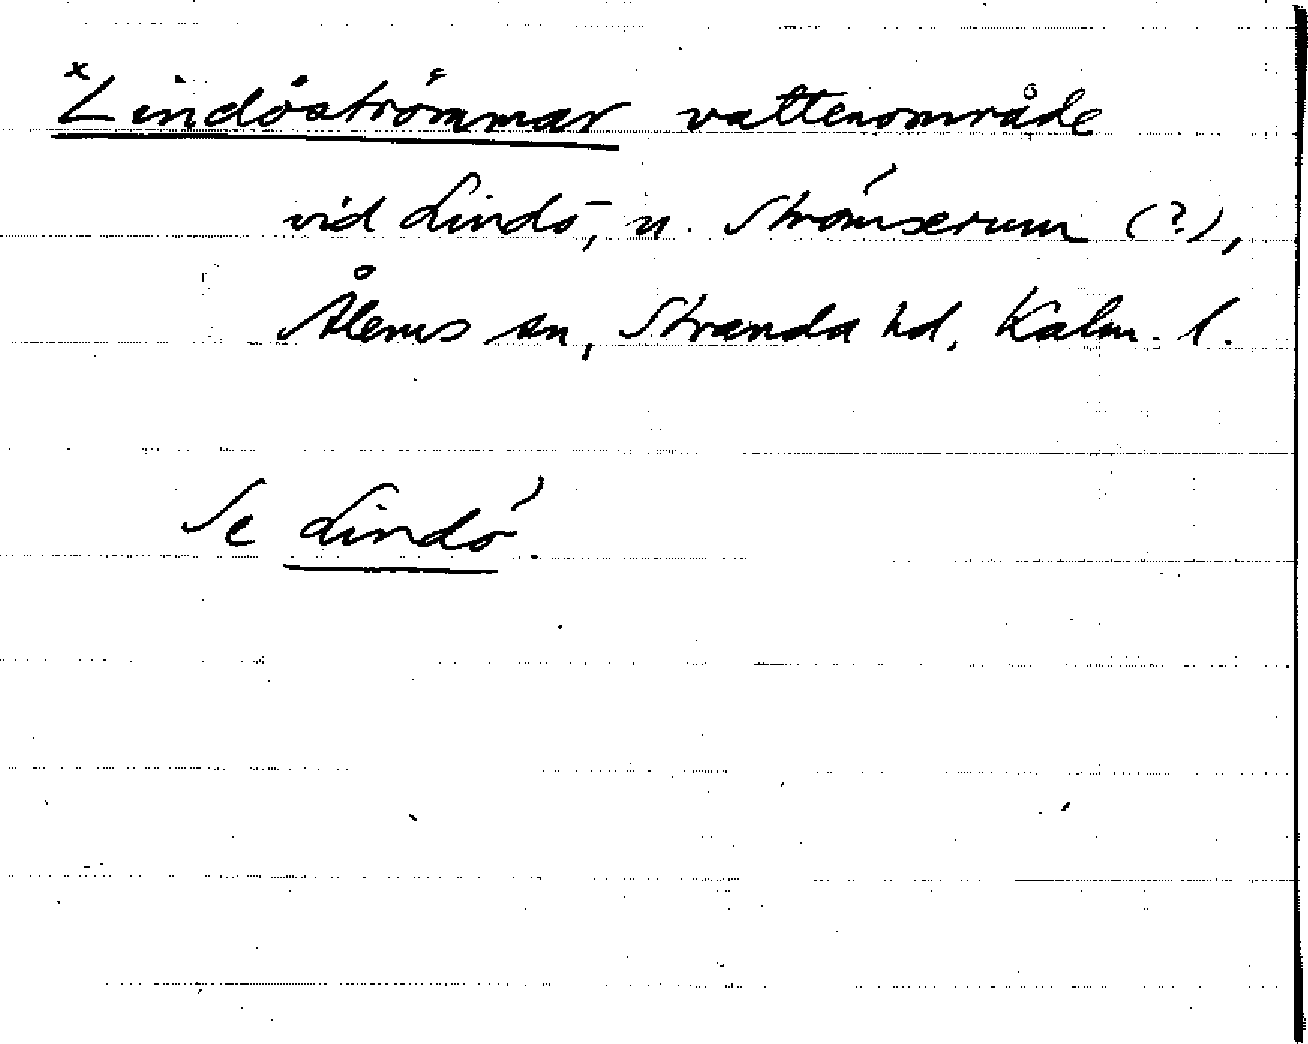 ×Lindöströmmar vattenområde
vid Lindö, n. Strömserum (?),
Ålems sn, Stranda hd, Kalm. l.
Se Lindö.